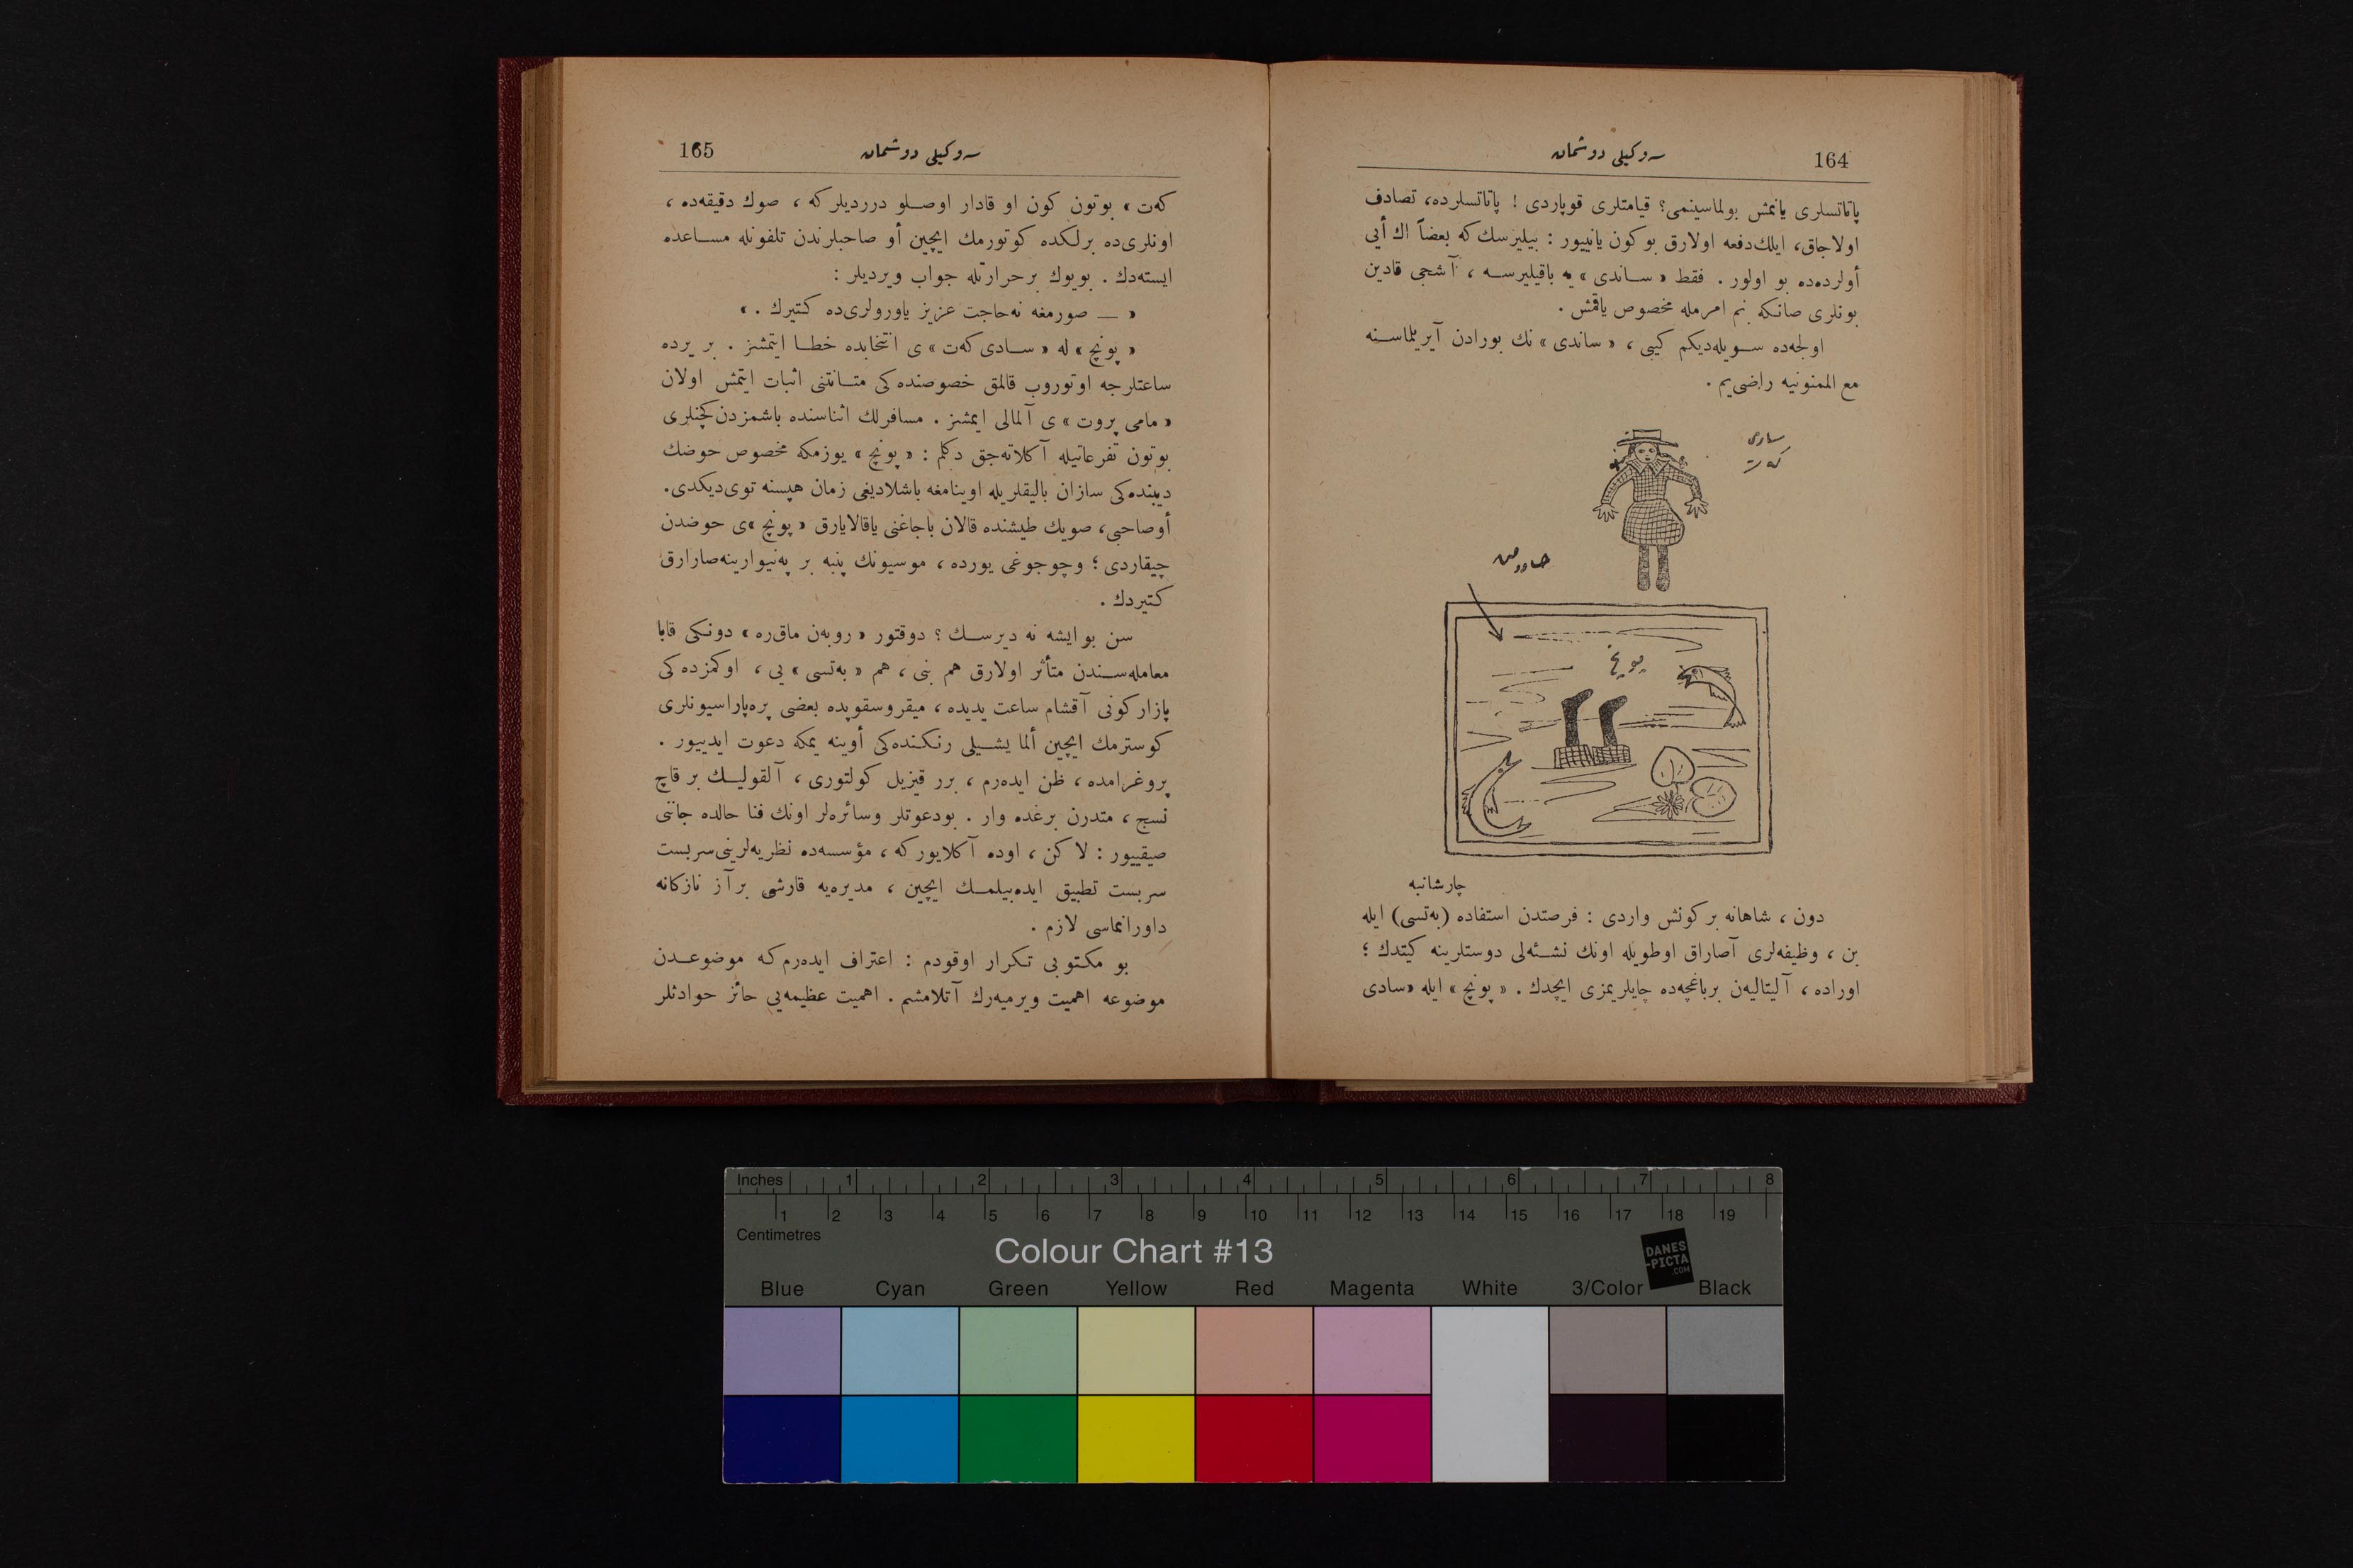 164
سوكيلى دوشمان
پاتاتسلرى يانمش بولماسينمى؟ قيامتلرى قوپاردى ! پاتاتسلرده، تصادف
اولاجاق، ايلك دفعه اولارق بو كون يانييور : بيليرسك كه بعضاً اك أيى
أولرده‌ده بو اولور . فقط « ساندى » يه باقيليرسه ، آشجى قادين
بونلرى صانكه بنم امرمله مخصوص ياقمش .
اولجه‌ده سويله‌ديكم كيبى ، « ساندى » نك بورادن آيريلماسنه
مع الممنونيه راضى‌يم .
سادى
كه‌ت
حاووض
پونچ
چارشانبه
دون ، شاهانه بر كونش واردى : فرصتدن استفاده (به‌تسى) ايله
بن ، وظيفه‌لرى آصاراق اوطويله اونك نشئه‌لى دوستلرينه كيتدك ؛
اوراده ، آليتاليه‌ن بر باغچه‌ده چايلريمزى ايچدك . « پونچ » ايله «سادى
165
سوكيلى دوشمان
كه‌ت » بوتون كون او قادار اوصلو درديلر كه ، صوك دقيقه‌ده ،
اونلرى‌ده برلكده كوتورمك ايچين أو صاحبلرندن تلفونله مساعده
ايسته‌دك . بويوك بر حرارتله جواب ويرديلر :
« — صورمغه نه‌حاجت عزيز ياورولرى‌ده كتيرك . »
« پونچ » له « سادى كه‌ت » ى انتخابده خطا ايتمشز . بر يرده
ساعتلرجه اوتوروب قالمق خصوصنده‌كى متانتنى اثبات ايتمش اولان
« مامى پروت » ى آلمالى ايمشز . مسافرلك اثناسنده باشمزدن كچنلرى
بوتون تفرعاتيله آكلاته‌جق دكلم : « پونچ » يوزمكه مخصوص حوضك
ديبنده‌كى سازان باليقلريله اوينامغه باشلاديغى زمان هپسنه توى ديكدى.
أوصاحبى، صويك طيشنده قالان باجاغنى ياقالايارق « پونچ »ى حوضدن
چيقاردى ؛ وچوجوغى يورده ، موسيونك پنبه بر په‌نيوارينه صارارق
كتيردك .
سن بو ايشه نه ديرسك ؟ دوقتور « روبه‌ن ماق‌ره » دونكى قابا
معامله‌سندن متأثر اولارق هم بنى ، هم « به‌تسى » يى ، اوكمزده‌كى
پازار كونى آقشام ساعت يديده ، ميقروسقوپده بعضى پره‌پاراسيونلرى
كوسترمك ايچين ألما يشيلى رنكنده‌كى أوينه يمكه دعوت ايدييور .
پروغرامده ، ظن ايده‌رم ، برر قيزيل كولتورى ، آلقوليك بر قاچ
نسج ، متدرن بر غده وار . بودعوتلر وسائره‌لر اونك فنا حالده جاننى
صيقييور : لاكن ، اوده آكلايور كه ، مؤسسه‌ده نظريه‌لرينى سربست
سربست تطبيق ايده‌بيلمك ايچين ، مديره‌يه قارشى بر آز نازكانه
داورانماسى لازم .
بو مكتوبى تكرار اوقودم : اعتراف ايده‌رم كه موضوعدن
موضوعه اهميت ويرميه‌رك آتلامشم . اهميت عظيمه‌يى حائز حوادثلر
Inches 1 2 3 4 5 6 7 8
1 2 3 4 5 6 7 8 9 10 11 12 13 14 15 16 17 18 19
Centimetres
Colour Chart #13
DANES
-PICTA
.COM
Blue Cyan Green Yellow Red Magenta White 3/Color Black